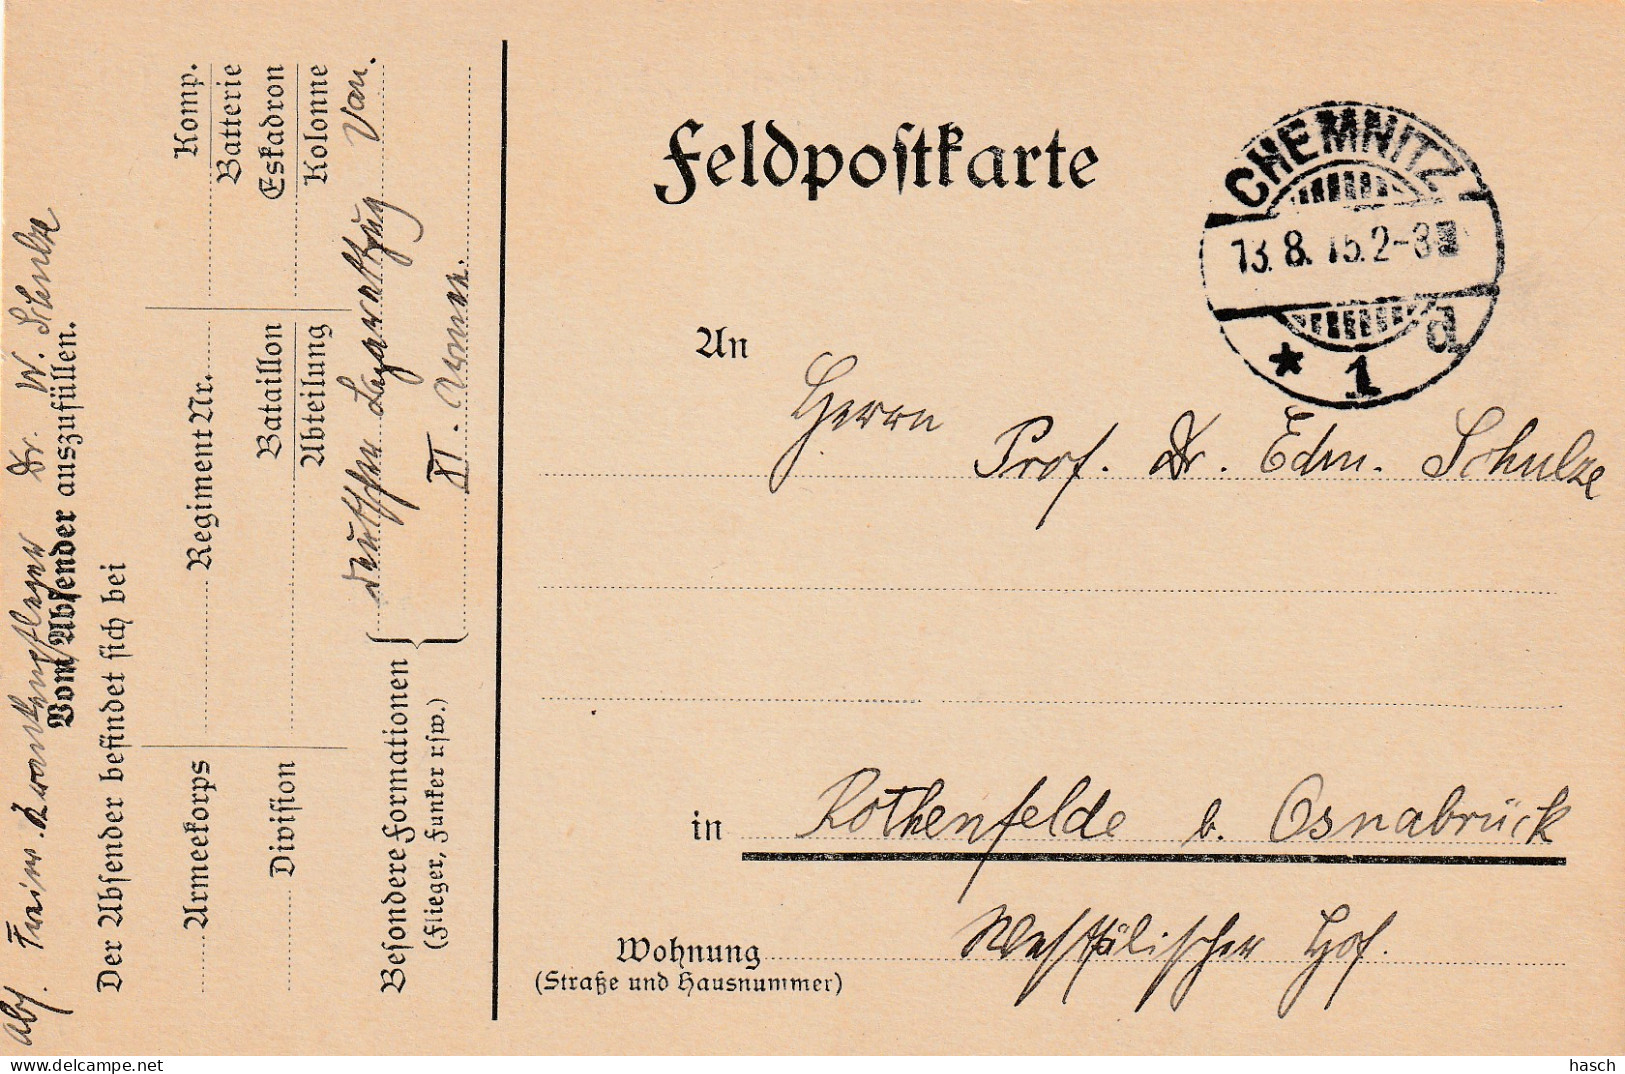 Feldpostkarte
CHEMNITZ
13.8.15.2-3
* 1 d
An
Herrn
Prof. Dr. Edm. Schulze
in Rothenfelde b. Osnabrück
Wohnung Westfälischer Hof.
(Straße und Hausnummer)
Abs. Freiw. Krankenpfleger Dr. W. Schulze
Vom Absender auszufüllen.
Der Absender befindet sich bei
Armeekorps Regiment Nr. Komp.
Batterie
Division Bataillon Eskadron
Abteilung Kolonne
Besondere Formationen
(Flieger, Funker usw.)
Lazarettzug
XI. Armee.
hasch